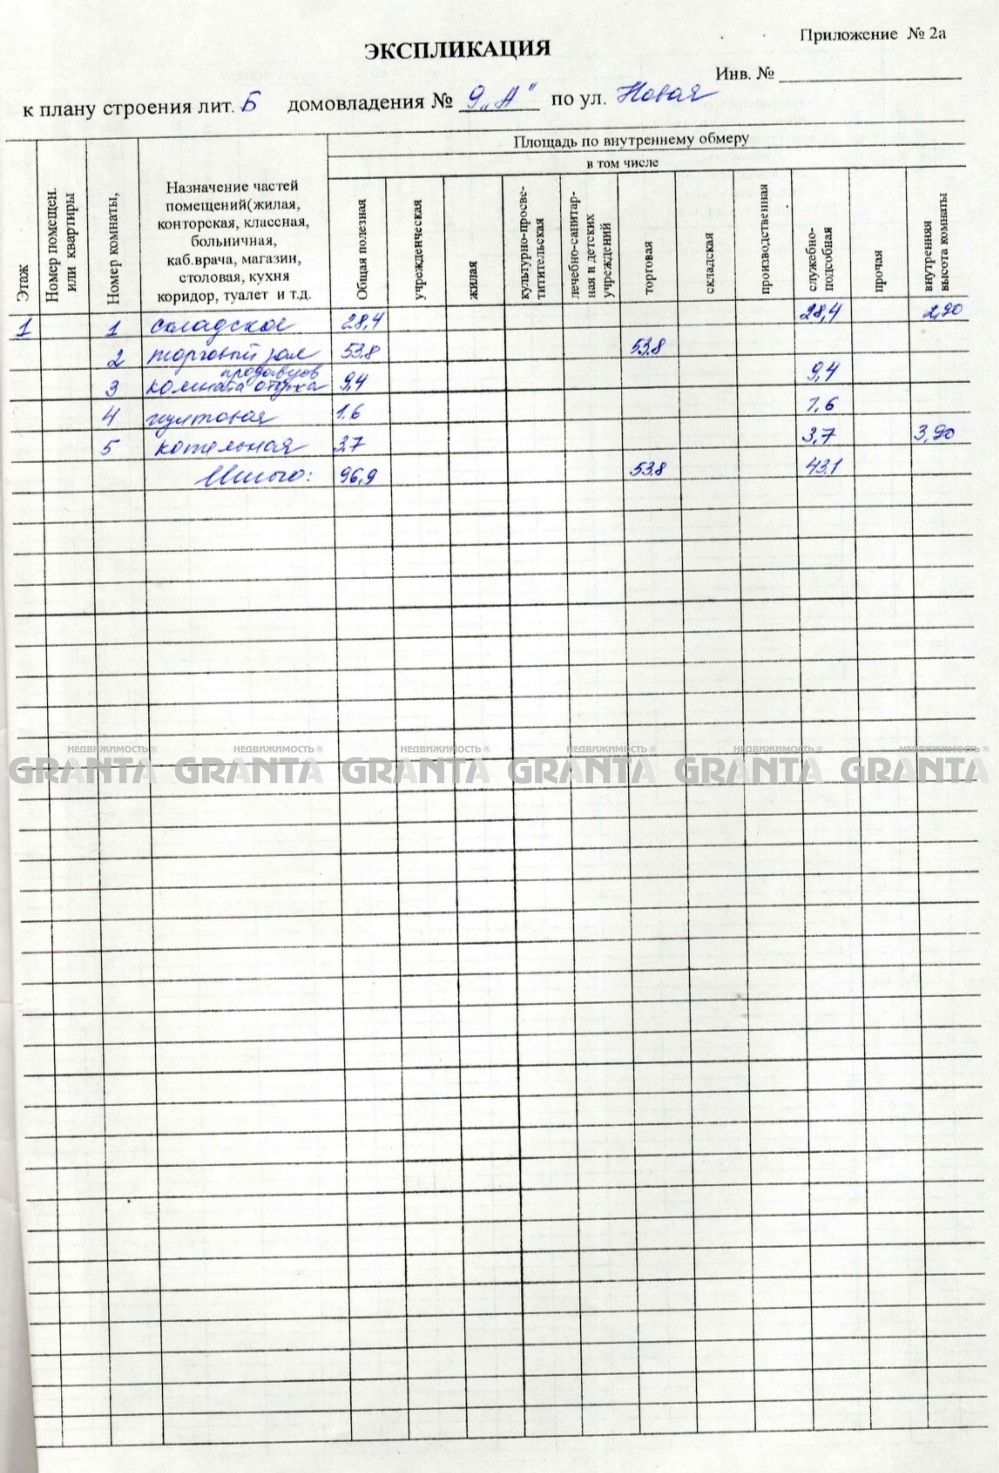 Приложение № 2а
ЭКСПЛИКАЦИЯ
Инв. №
к плану строения лит. Б домовладения № 9 „А“ по ул. Новая
Площадь по внутреннему обмеру
в том числе
Этаж
Номер помещен. или квартиры
Номер комнаты,
Назначение частей
помещений(жилая,
конторская, классная,
больничная,
каб.врача, магазин,
столовая, кухня
коридор, туалет и т.д.
Общая полезная
учрежденческая
жилая
культурно-просве-
титительская
лечебно-санитар-
ная и детских
учреждений
торговая
складская
производственная
служебно-
подсобная
прочая
внутренняя
высота комнаты
1 1 складское 28,4 28,4 2,90
2 торговый зал 53.8 53.8
продавцов
3 комната отдыха 9,4 9,4
4 пултовая 1.6 1,6
5 котельная 3.7 3,7 3,90
Итого: 96,9 53.8 43.1
НЕДВИЖИМОСТЬ ® НЕДВИЖИМОСТЬ ® НЕДВИЖИМОСТЬ ® НЕДВИЖИМОСТЬ ® НЕДВИЖИМОСТЬ ® НЕДВИЖИМОСТЬ ®
GRANTA GRANTA GRANTA GRANTA GRANTA GRANTA